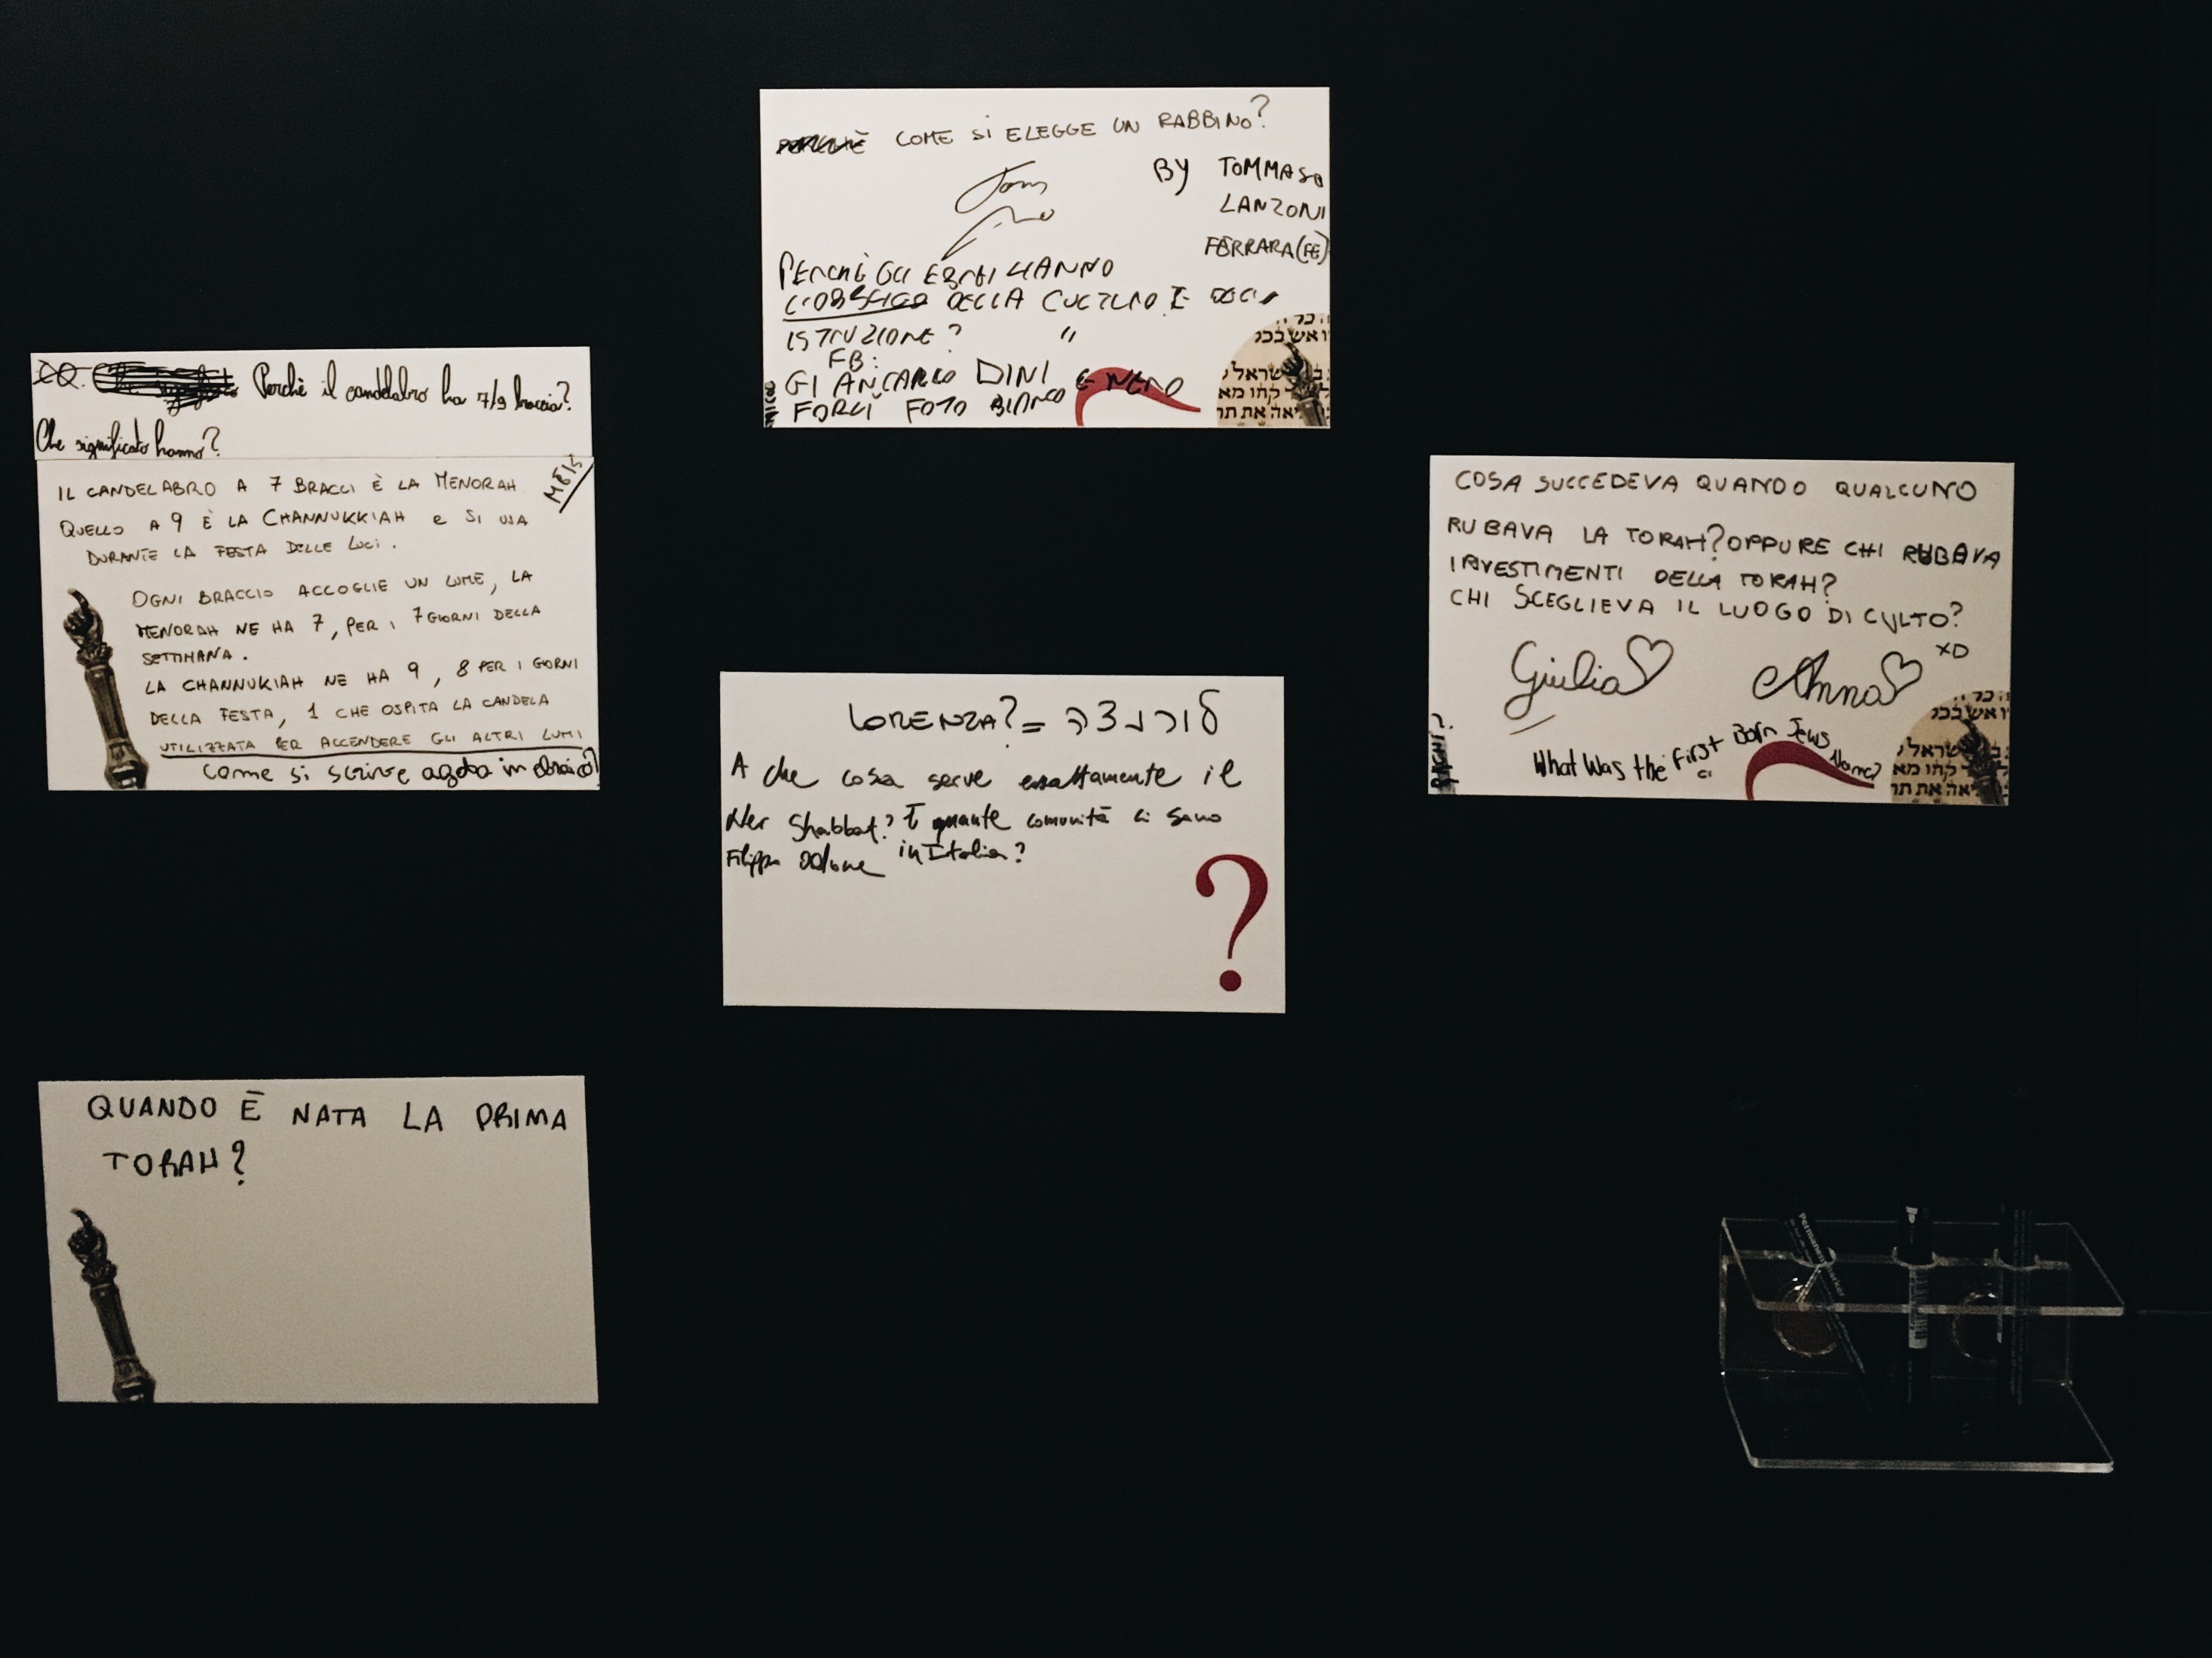 Perchè il candelabro ha 7/9 braccia?
Che significato hanno?
MEIS
IL CANDELABRO A 7 BRACCI È LA MENORAH
QUELLO A 9 È LA CHANNUKKIAH e SI USA
DURANTE LA FESTA DELLE LUCI.
OGNI BRACCIO ACCOGLIE UN LUME, LA
MENORAH NE HA 7, PER I 7 GIORNI DELLA
SETTIMANA.
LA CHANNUKIAH NE HA 9, 8 PER I GIORNI
DELLA FESTA, 1 CHE OSPITA LA CANDELA
UTILIZZATA PER ACCENDERE GLI ALTRI LUMI
Come si scrive in ebraico?
QUANDO È NATA LA PRIMA
TORAH?
COME SI ELEGGE UN RABBINO?
BY TOMMASO
LANZONI
FERRARA (FE)
PERCHÈ GLI EBREI HANNO
L'OBBLIGO DELLA CULTURA E
ISTRUZIONE? "
FB:
GIANCARLO DINI
FORLÌ FOTO BIANCO E NERO
LORENZA? = לורנצה
A che cosa serve esattamente il
Ner Shabbat? E quante comunità ci sono
in Italia?
Filippo
COSA SUCCEDEVA QUANDO QUALCUNO
RUBAVA LA TORAH? OPPURE CHI RUBAVA
INVESTIMENTI DELLA TORAH?
CHI SCEGLIEVA IL LUOGO DI CULTO?
Giulia Anna XD
What Was the First Born Jews Name?
?
Permanent marker